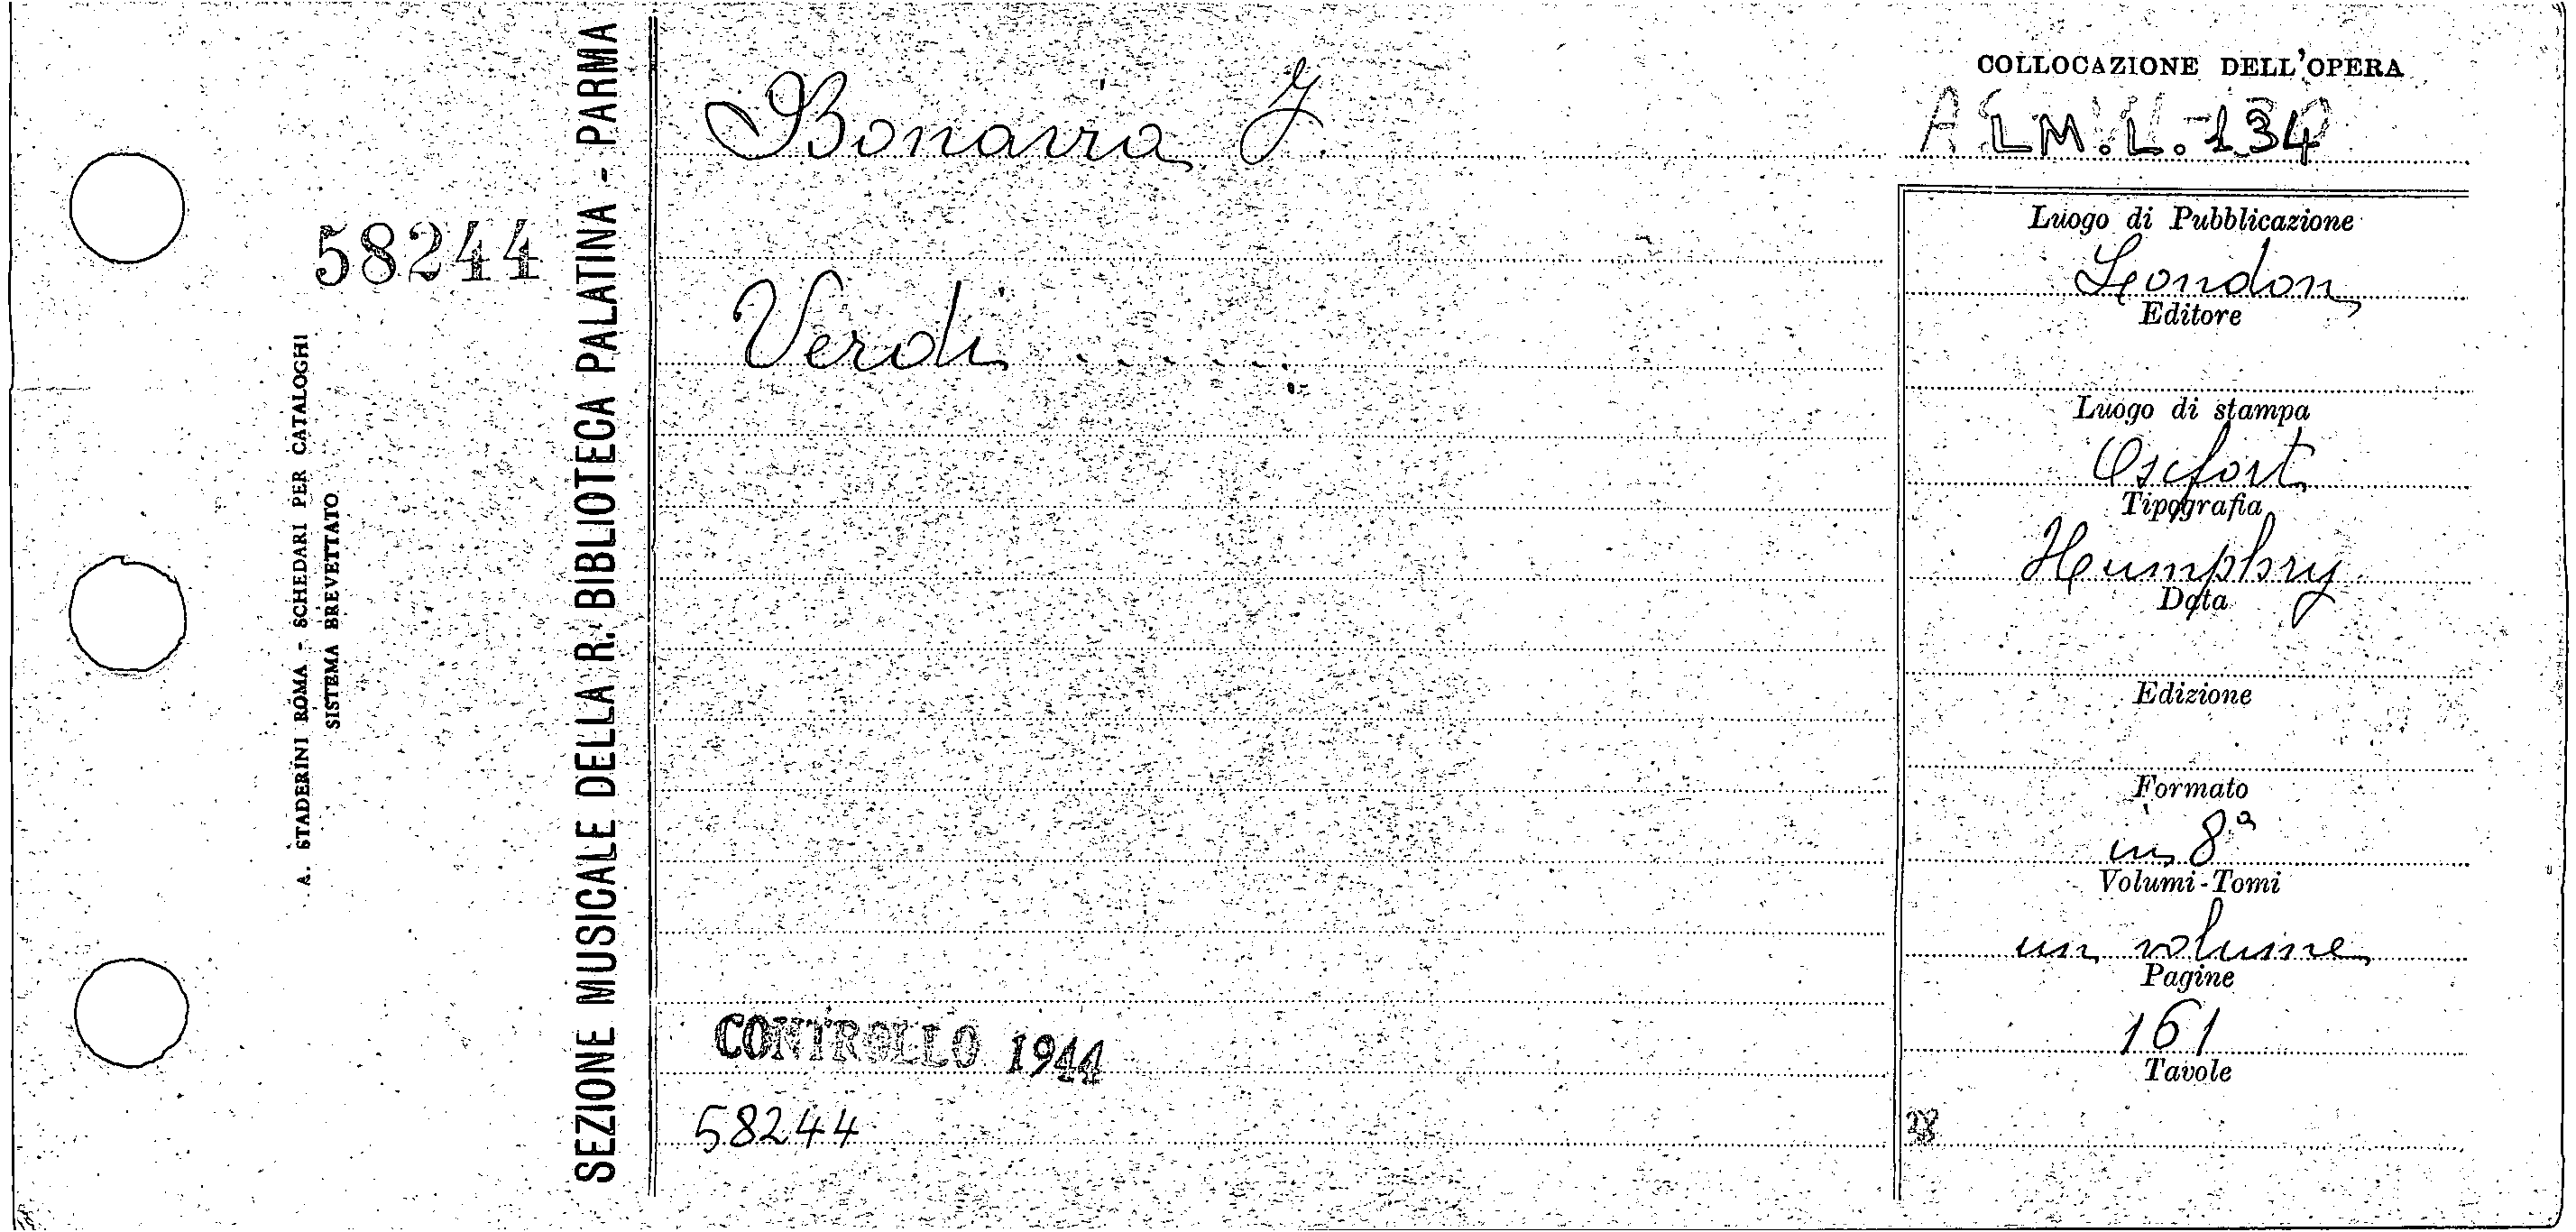 SEZIONE MUSICALE DELLA R. BIBLIOTECA PALATINA - PARMA
A. STADERINI ROMA - SCHEDARI PER CATALOGHI
SISTEMA BREVETTATO
58244
Bonavia F.
Verdi .....
CONTROLLO 1944
58244
COLLOCAZIONE DELL'OPERA
LM.L.134
Luogo di Pubblicazione
London
Editore
Luogo di stampa
Oxfort
Tipografia
Humphry
Data
Edizione
Formato
in 8ª
Volumi-Tomi
un volume
Pagine
161
Tavole